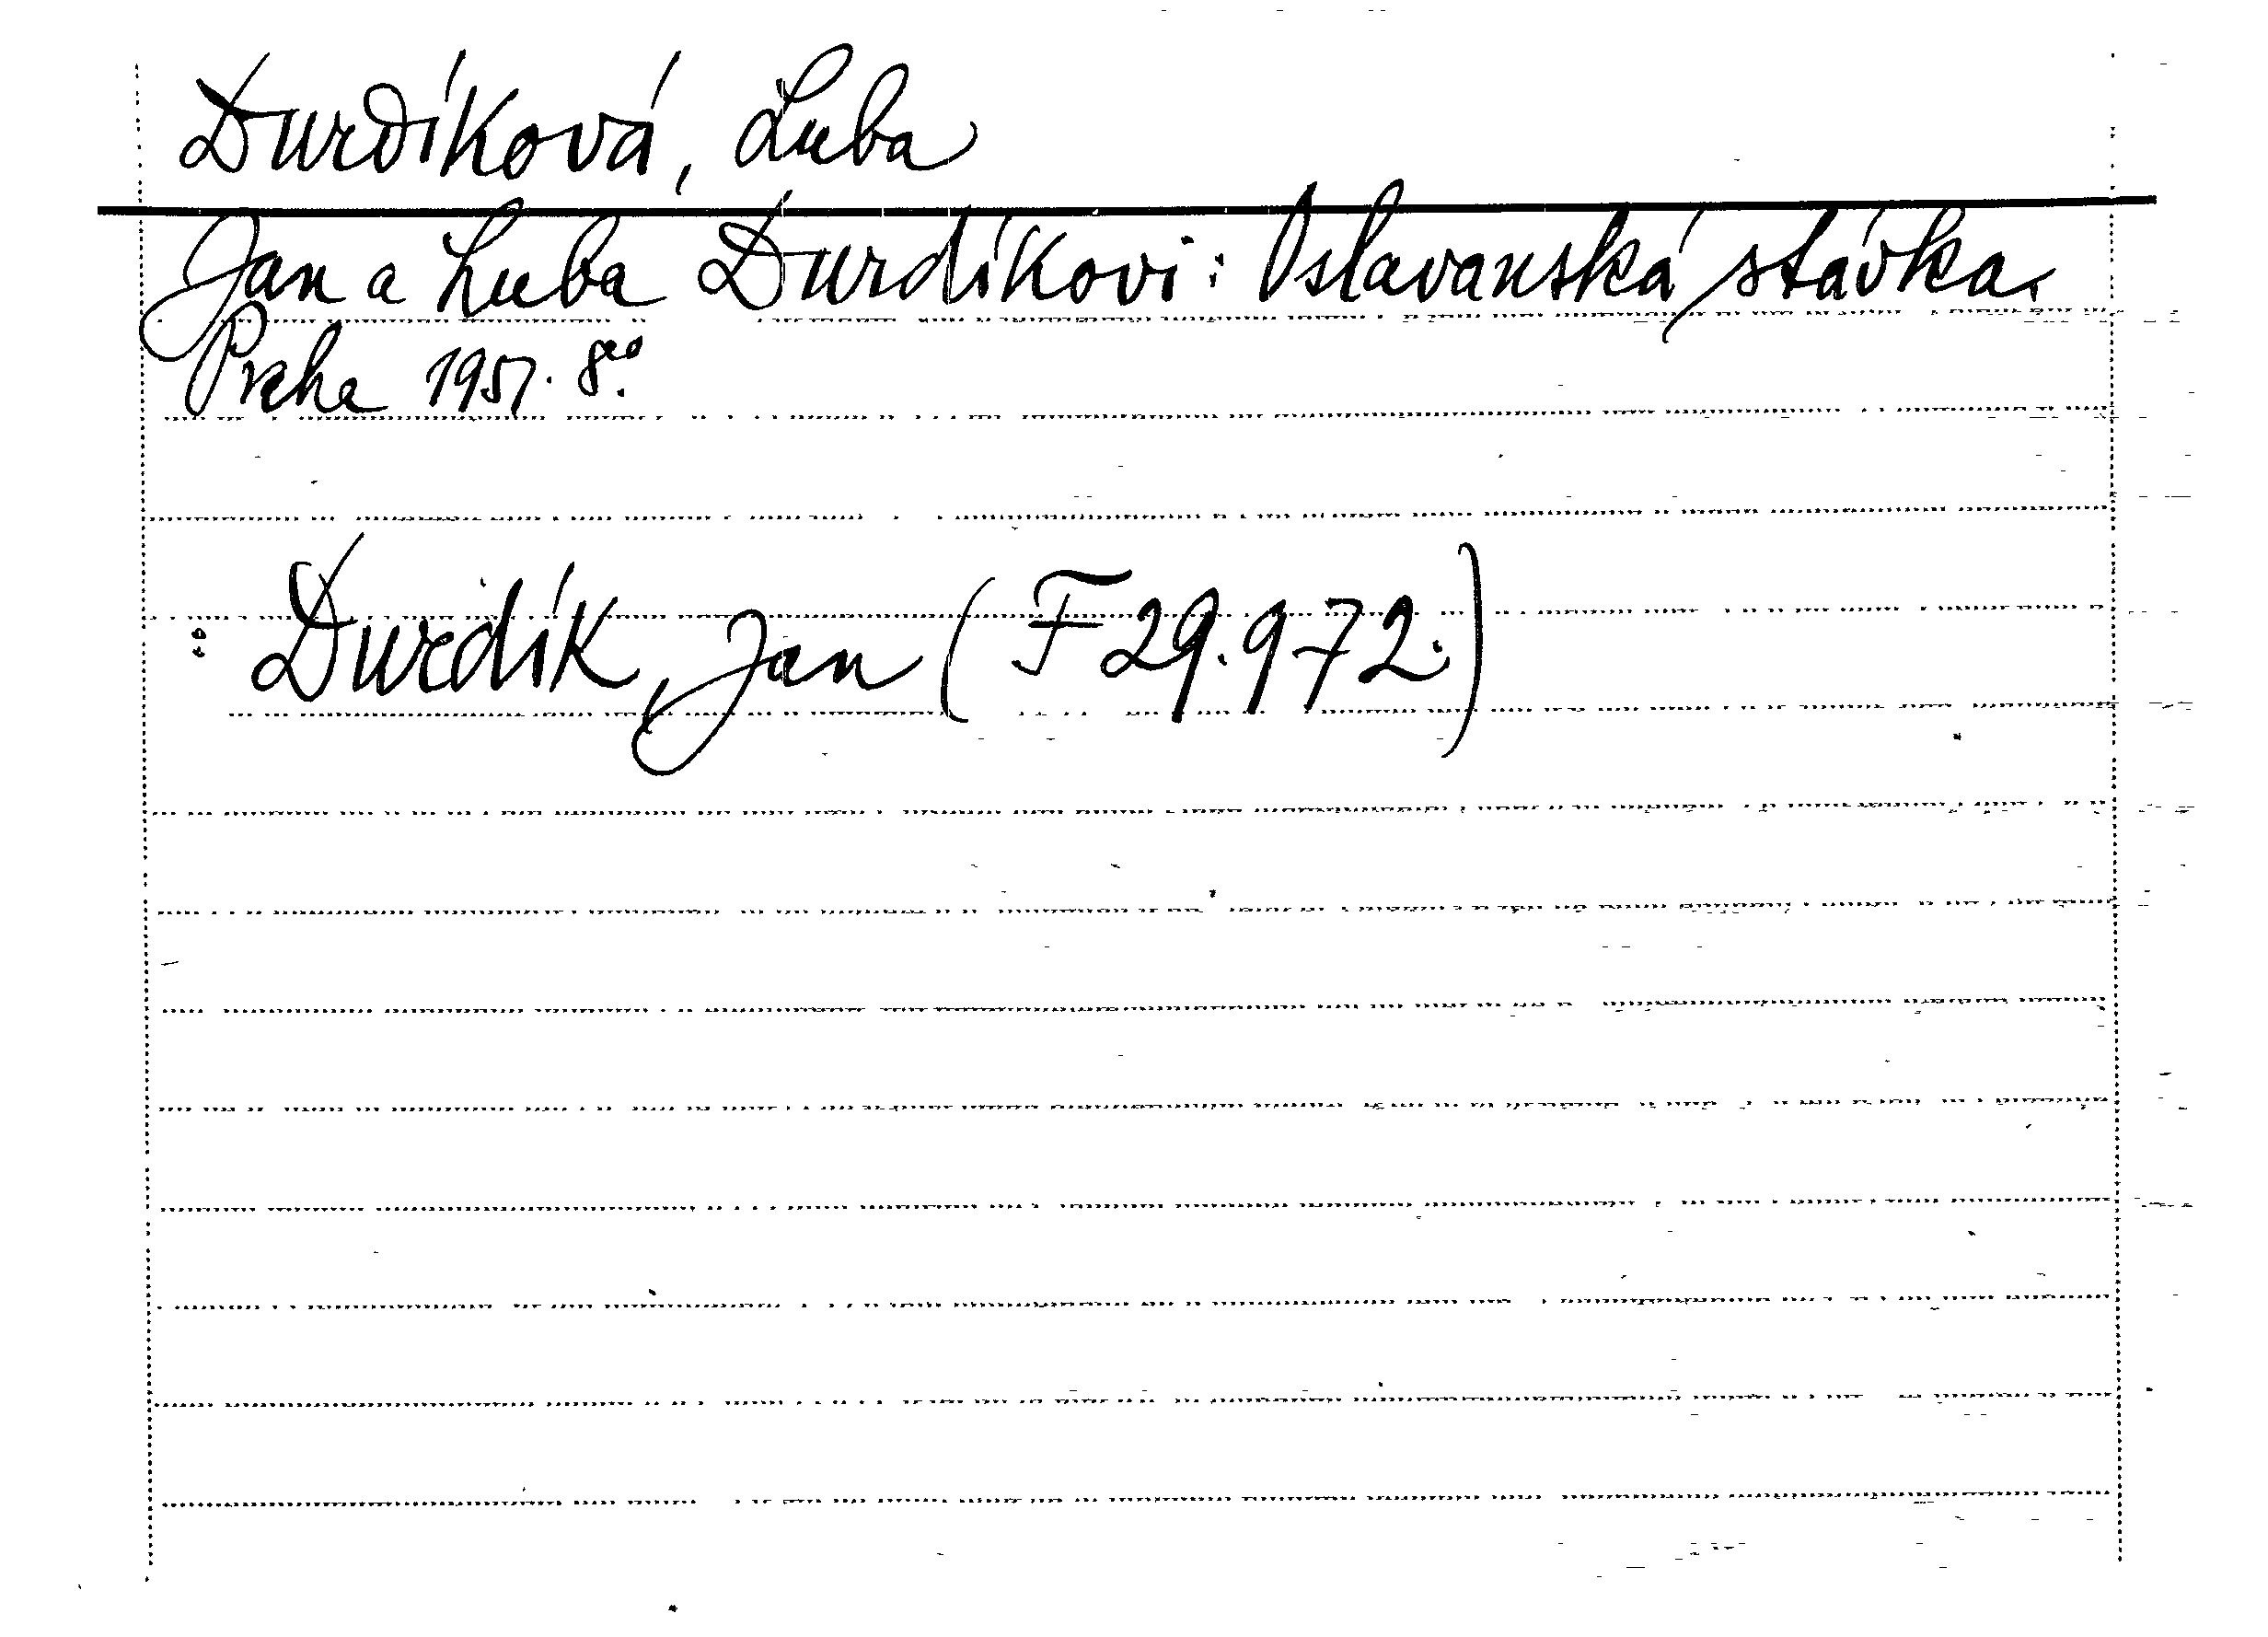 Durdíková, Luba
Jan a Luba Durdíkovi: Oslavanská stávka.
Praha 1951. 8°.
: Durdík, Jan (F 29.972.)